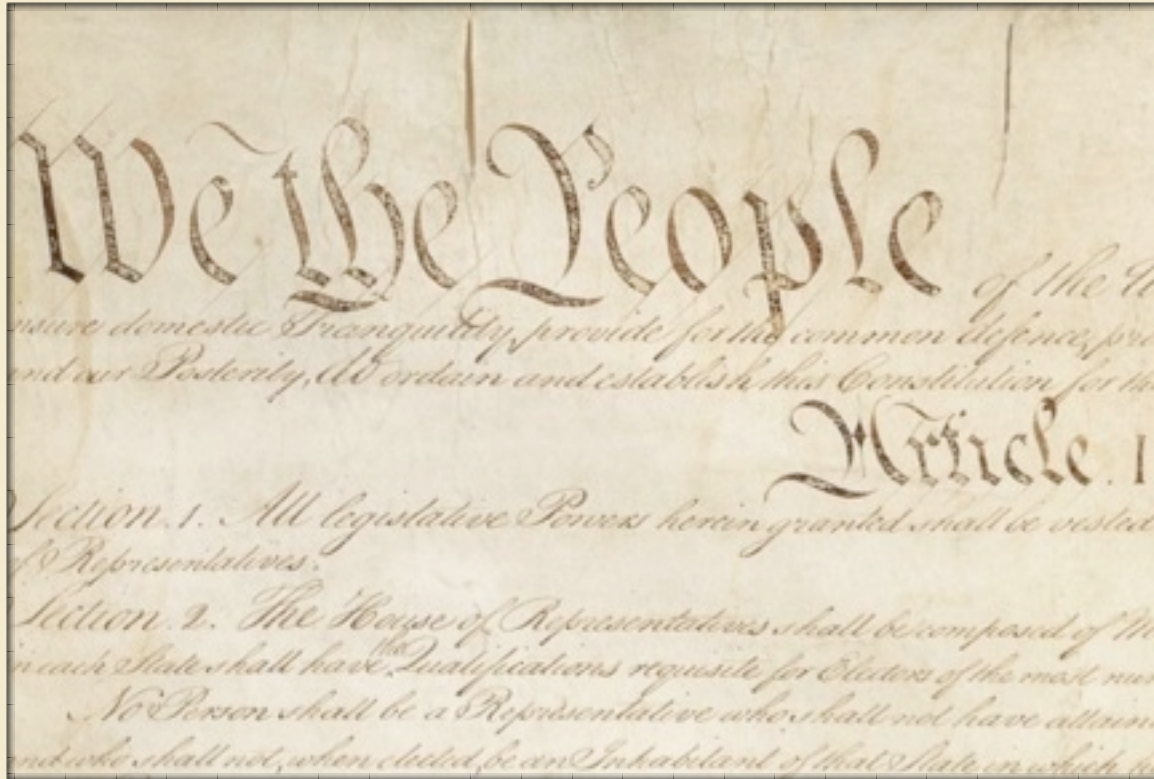 We the People of the
nsure domestic Tranquility, provide for the common defence, pro
and our Posterity, do ordain and establish this Constitution for the
Article. I
Section. 1. All legislative Powers herein granted shall be vested
of Representatives.
Section. 2. The House of Representatives shall be composed of
in each State shall have the Qualifications requisite for Electors of the most num
No Person shall be a Representative who shall not have attain
and who shall not, when elected, be an Inhabitant of that State in which